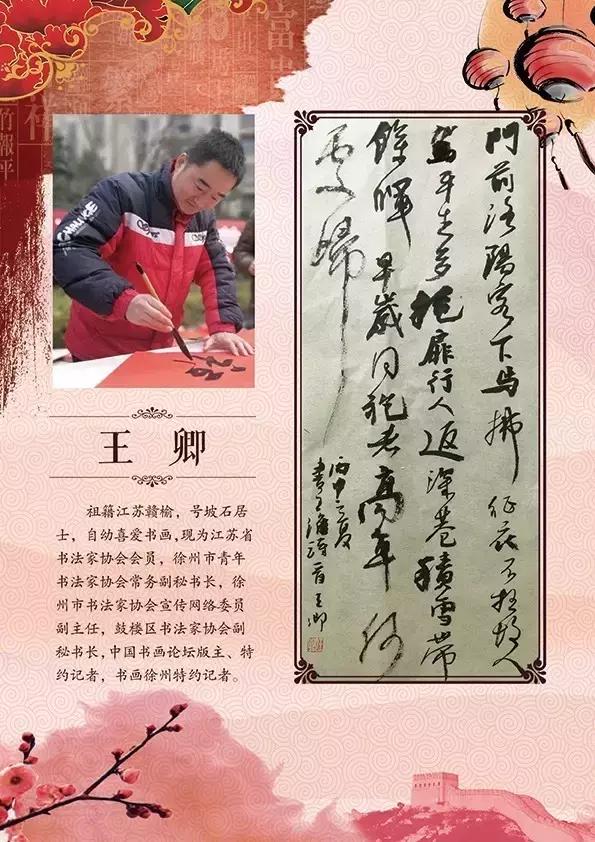 王 卿
祖籍江苏赣榆，号坡石居
士，自幼喜爱书画,现为江苏省
书法家协会会员，徐州市青年
书法家协会常务副秘书长，徐
州市书法家协会宣传网络委员
副主任，鼓楼区书法家协会副
秘书长,中国书画论坛版主、特
约记者，书画徐州特约记者。
門前洛陽客下馬拂征衣不枉故人
駕平生多掩扉行人返深巷積雪帶
餘暉早歲同袍者高車何
處歸
丙申之夏
書王維詩一首王卿
富
祥
竹報平